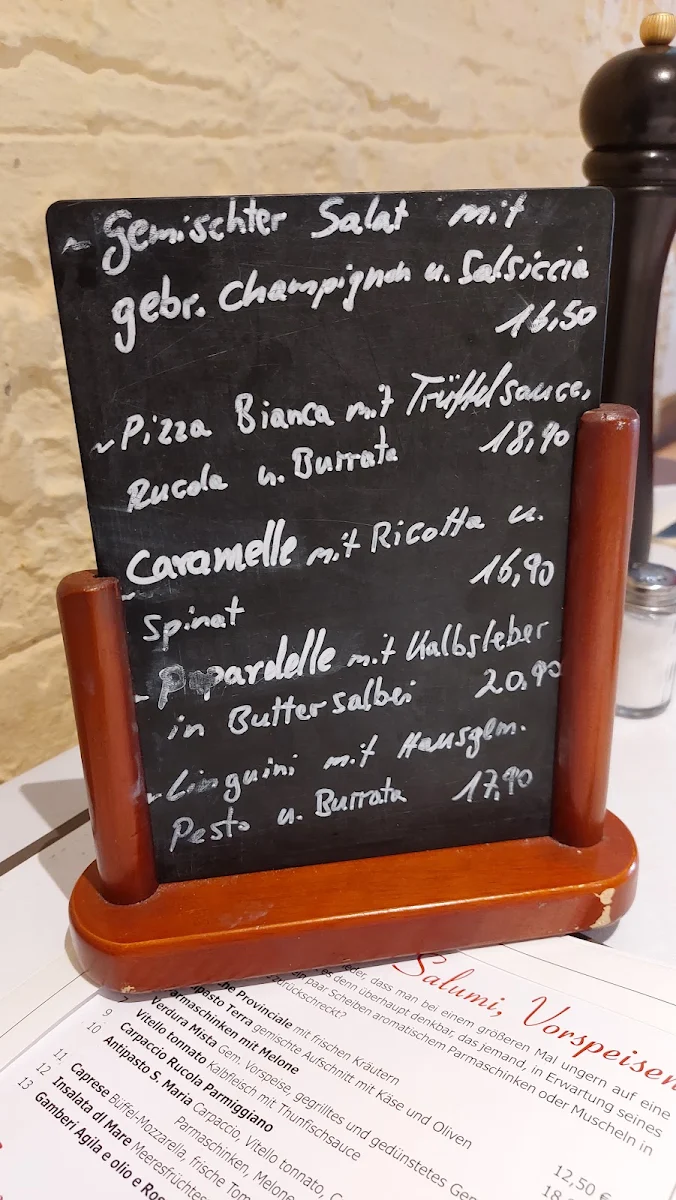 ~ Gemischter Salat mit
gebr. Champignon u. Salsiccia
16,50
~ Pizza Bianca mit Trüffelsauce,
18,90
Rucola u. Burrata
Caramelle mit Ricotta u.
16,90
Spinat
- Papardelle mit Kalbsleber
20,90
in Buttersalbei
- Linguini mit Hausgem.
17,90
Pesto u. Burrata
Salumi, Vorspeisen
dass man bei einem größeren Mal ungern auf eine
denn überhaupt denkbar, das jemand, in Erwartung seines
paar Scheiben aromatischem Parmaschinken oder Muscheln in
zurückschreckt?
Provinciale mit frischen Kräutern
Terra gemischte Aufschnitt mit Käse und Oliven
Parmaschinken mit Melone
Verdura Mista Gem. Vorspeise, gegrilltes und gedünstetes
9 Vitello tonnato Kalbfleisch mit Thunfischsauce
10 Carpaccio Rucola Parmiggiano
Antipasto S. Maria Carpaccio, Vitello tonnato,
Parmaschinken, Melone
11 Caprese Büffel-Mozzarella, frische
12 Insalata di Mare Meeresfrüchte
13 Gamberi Agila e olio e
12,50 €
18